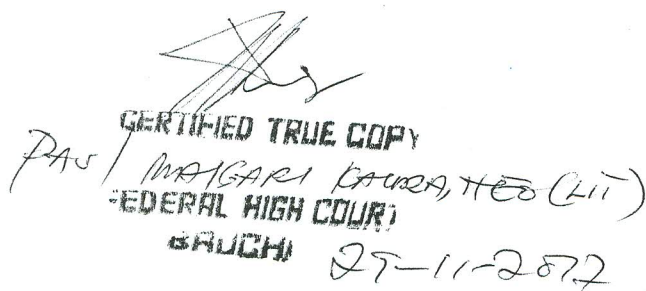 CERTIFIED TRUE COPY
PAUL MAIGARI KAURA, HEO (LIT)
FEDERAL HIGH COURT
BAUCHI